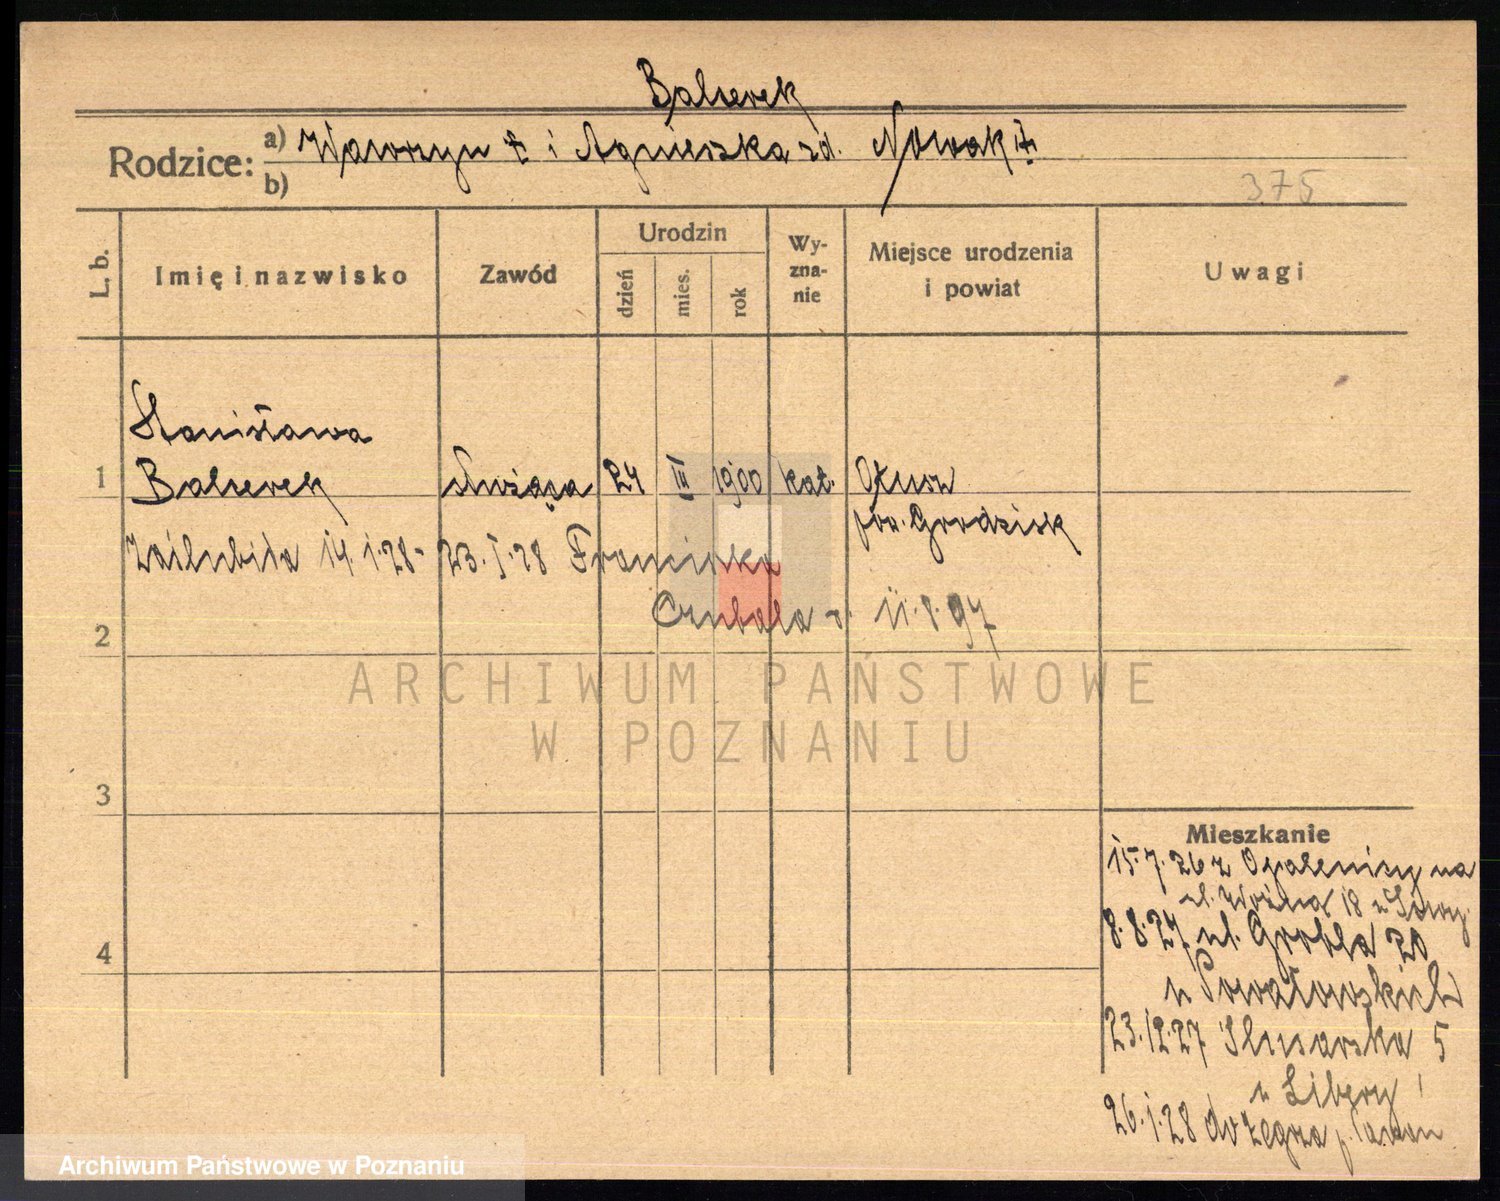 Balcerek
Rodzice: a) Wawrzyn † i Agnieszka zd. Nowak †
b)
375
L. b.
Imię i nazwisko
Zawód
Urodzin
dzień
mies.
rok
Wy-
zna-
nie
Miejsce urodzenia
i powiat
Uwagi
Stanisława
1 Balcerek służąca 24 III 1900 kat. Otusz
pow. Grodzisk
zaślubiła 14.1.28 - 23.I.28 Franciszka
Czubała 11.8.97
2
3
4
ARCHIWUM PAŃSTWOWE
W POZNANIU
Mieszkanie
15.7.26 z Opalenicy na
ul. Woźna 18 u
8.8.27 ul. Grobla 20
u Powałowskich
23.12.27 Ślusarska 5
u Libery
26.1.28 do Żegrza p.
Archiwum Państwowe w Poznaniu